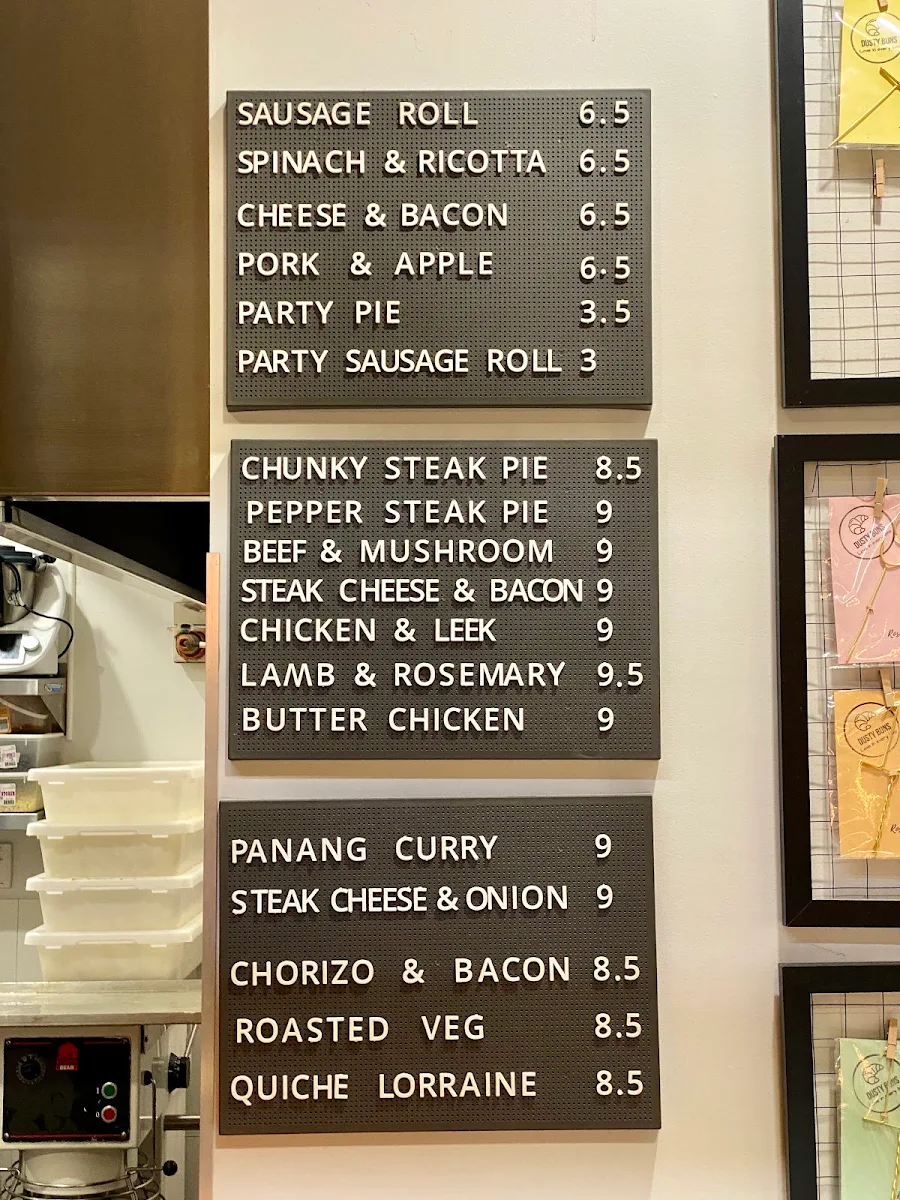 SAUSAGE ROLL 6.5
SPINACH & RICOTTA 6.5
CHEESE & BACON 6.5
PORK & APPLE 6.5
PARTY PIE 3.5
PARTY SAUSAGE ROLL 3
CHUNKY STEAK PIE 8.5
PEPPER STEAK PIE 9
BEEF & MUSHROOM 9
STEAK CHEESE & BACON 9
CHICKEN & LEEK 9
LAMB & ROSEMARY 9.5
BUTTER CHICKEN 9
PANANG CURRY 9
STEAK CHEESE & ONION 9
CHORIZO & BACON 8.5
ROASTED VEG 8.5
QUICHE LORRAINE 8.5
DUSTY BUNS
DUSTY BUNS
DUSTY BUNS
DUSTY BUNS